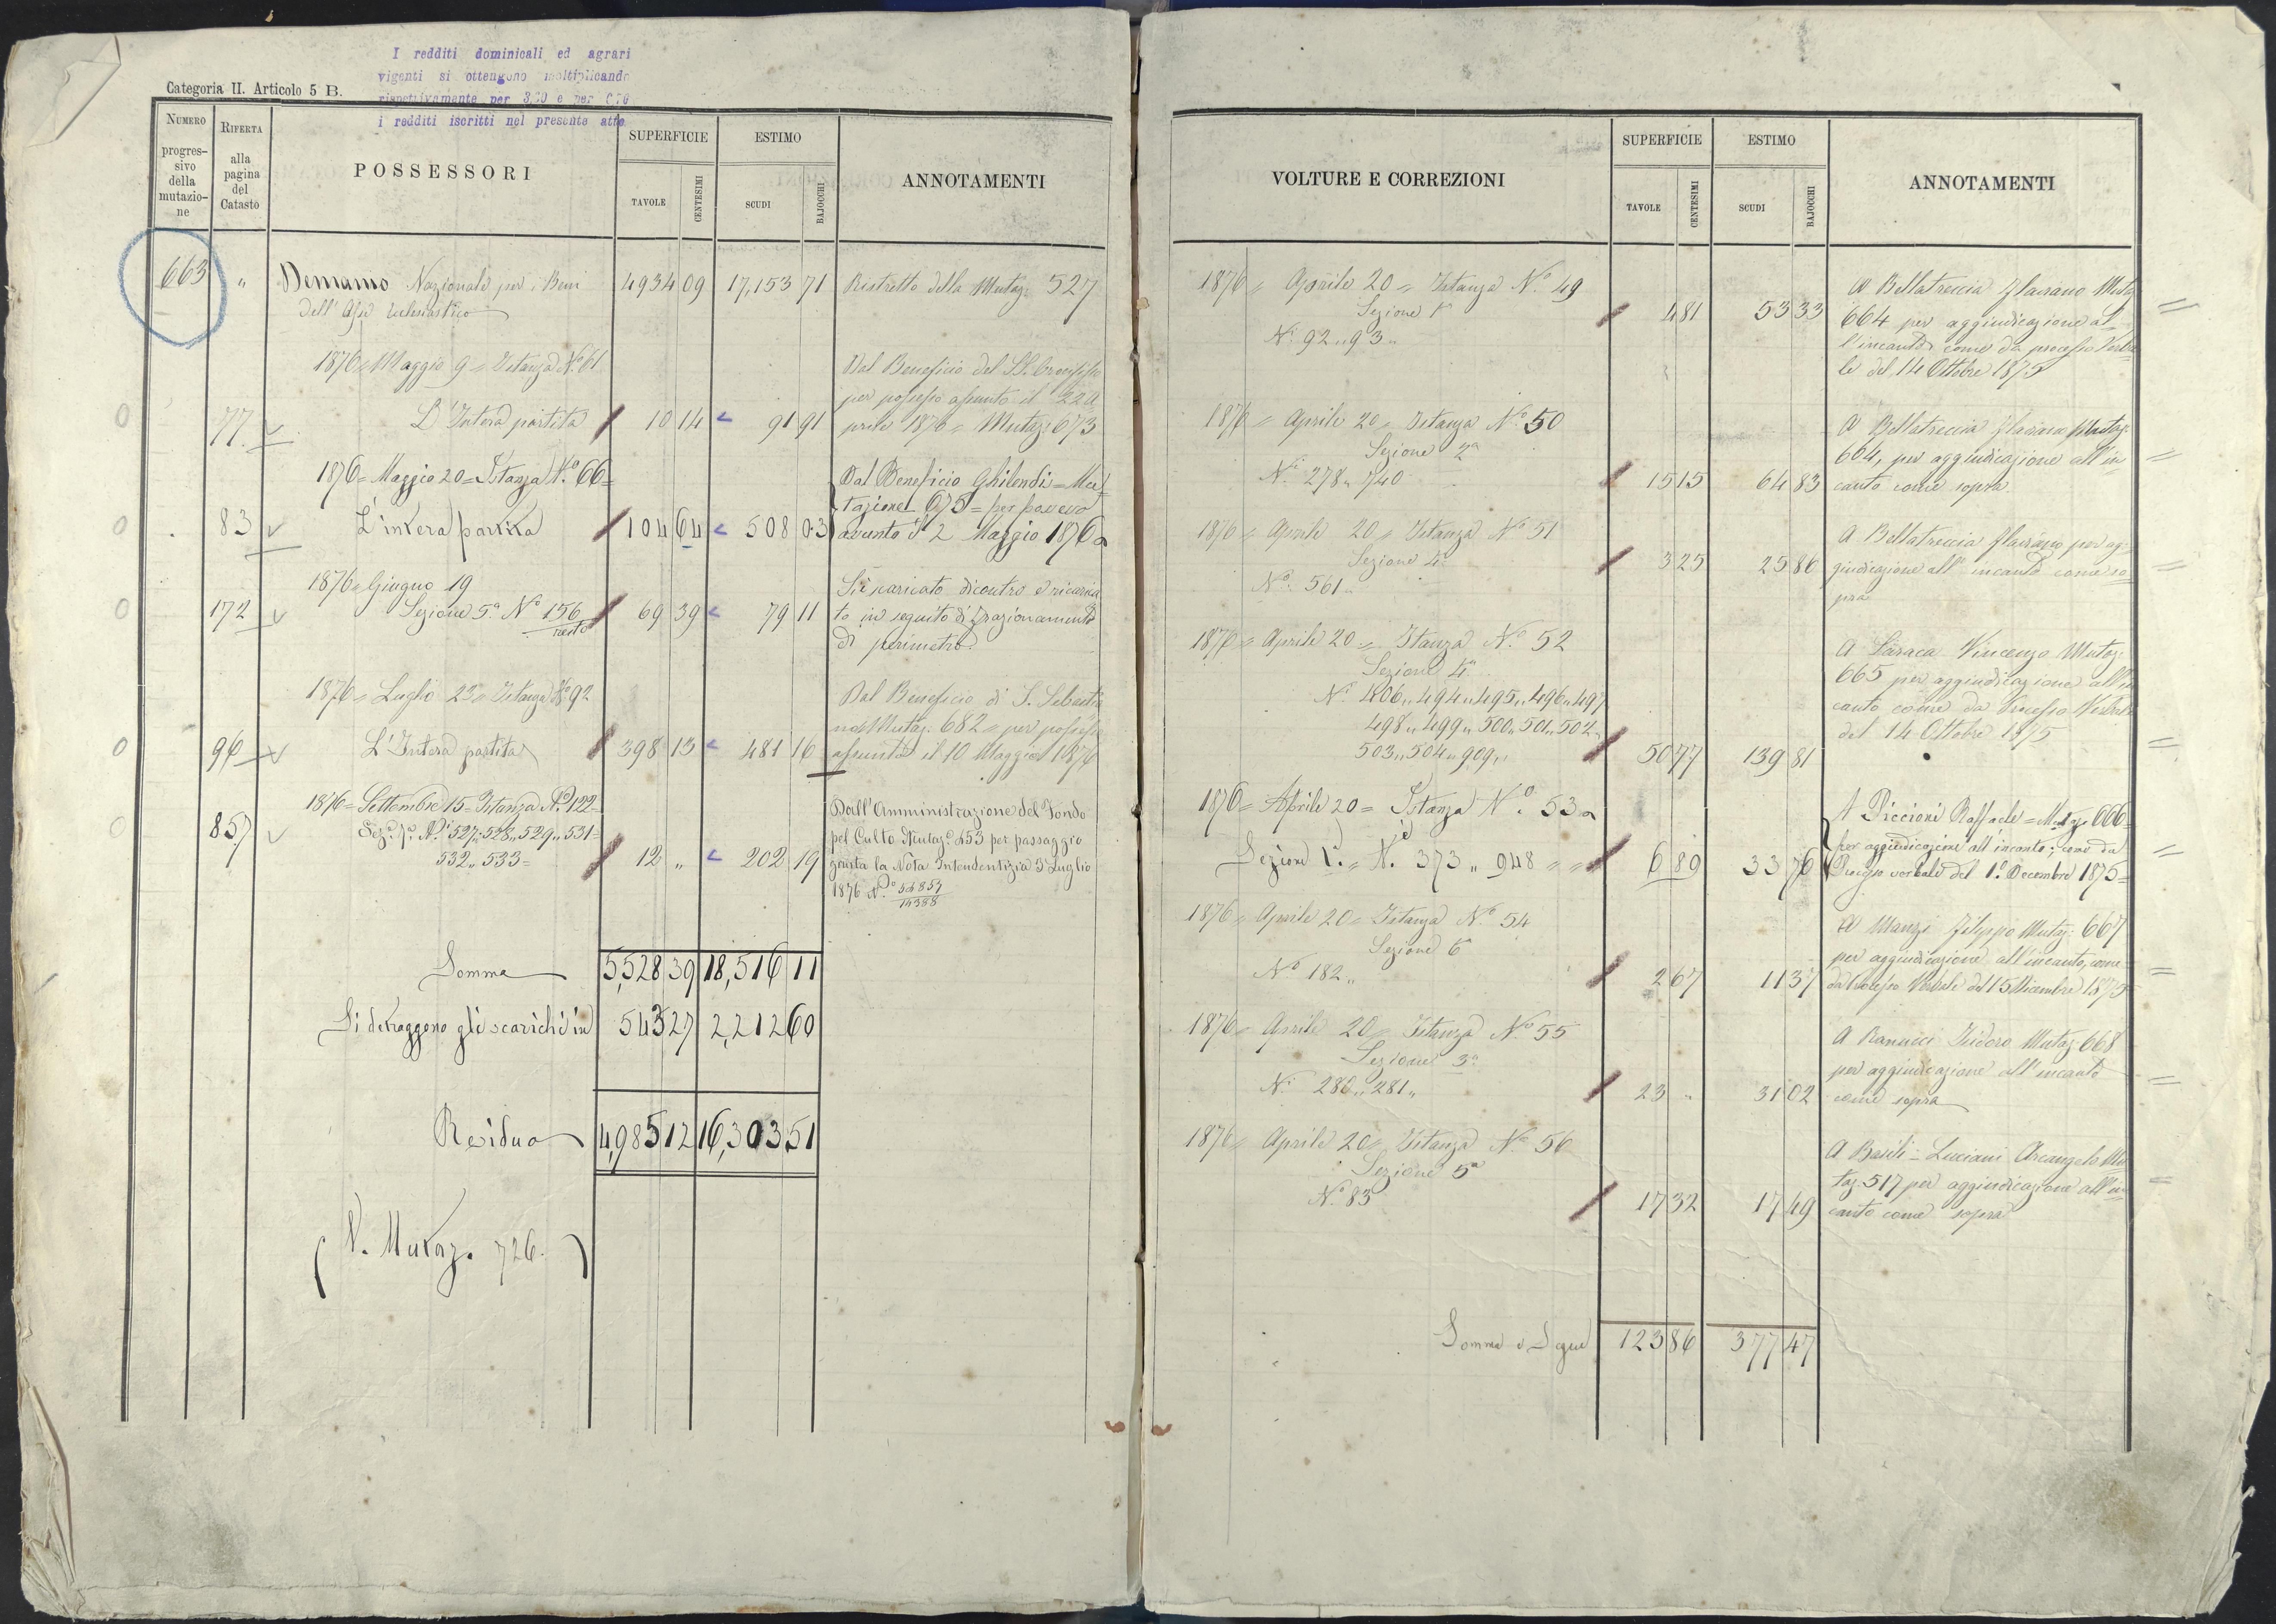 I redditi dominicali ed agrari
vigenti si ottengono moltiplicando
rispettivamente per 3,20 e per
i redditi iscritti nel presente atto
Categoria II. Articolo 5 B.
NUMERO progressivo della mutazione
RIFERTA alla pagina del Catasto
POSSESSORI
SUPERFICIE
TAVOLE
CENTESIMI
ESTIMO
SCUDI
BAJOCCHI
ANNOTAMENTI
663 " Demanio Nazionale per i Beni 4934 09 17,153 71 Ristretto della Mutaz. 527
dell'Asse Ecclesiastico
1876 = Maggio 9 = Istanza N.o 61 Dal Beneficio del SS. Crocifisso
per possesso assunto il 22 A
77 L'Intera partita 10 14 91 91 prile 1876 = Mutaz: 673
1876 = Maggio 20 = Istanza N.o 66 = Dal Beneficio Ghilendi = Mu
tazione 675 = per possesso
83 L'intera partita 104 64 508 03 assunto il 2 Maggio 1876
1876 = Giugno 19 Si è scaricato di contro e ricarica
172 Sezione 5a N.o 156 69 39 79 11 to in seguito di frazionamento
resto
di perimetro
1876 = Luglio 23 = Istanza N.o 92 Dal Beneficio di S. Sebastia
no Mutaz. 682 = per possesso
96 L'Intera partita 398 13 481 16 assunto il 10 Maggio 1876
1876 = Settembre 15 = Istanza N.o 122 = Dall'Amministrazione del Fondo
857 Sez.e 1a N.i 527 " 528 " 529 " 531 = pel Culto Mutaz.e 453 per passaggio
532 " 533 = 12 " 202 19 giusta la Nota Intendentizia 3 Luglio
1876 N.o
Somma 5,528 39 18,516 11
Si detraggono gli scarichi in 543 27 2,212 60
Residua 4,985 12 16,303 51
(V. Mutaz. 726.)
VOLTURE E CORREZIONI
SUPERFICIE
TAVOLE
CENTESIMI
ESTIMO
SCUDI
BAJOCCHI
ANNOTAMENTI
1876 = Aprile 20 = Istanza N.o 49 A Bellatreccia Flaviano Mutaz
Sezione 1a 4 81 53 33 664 per aggiudicazione al
N.i 92 " 93 " l'incanto come da processo Verba
le del 14 Ottobre 1875
1876 = Aprile 20 = Istanza N.o 50 A Bellatreccia Flaviano Mutaz:
Sezione 2a 664, per aggiudicazione all'in
N.i 278 " 740 15 15 64 83 canto come sopra
1876 = Aprile 20 = Istanza N.o 51 A Bellatreccia Flaviano per ag
Sezione 4a 3 25 25 86 giudicazione all'incanto come so
N.o 561 " pra
1876 = Aprile 20 = Istanza N.o 52 A Saraca Vincenzo Mutaz:
Sezione 4a 665 per aggiudicazione all'in
N.i 406 " 494 " 495 " 496 " 497 canto come da Processo Verbale
498 " 499 " 500 " 501 " 502 " del 14 Ottobre 1875
503 " 504 " 909 " 50 77 139 81
1876 = Aprile 20 = Istanza N.o 53 A Piccioni Raffaele = Mutaz.e 666 =
per aggiudicazione all'incanto; come da
Sezione 1a " N.i 373 " 948 " " 6 89 33 76 Processo verbale del 1.o Decembre 1875 =
1876 = Aprile 20 = Istanza N.o 54 A Manzi Filippo Mutaz: 667
Sezione 6a per aggiudicazione all'incanto, come
N.o 182 " 2 67 11 37 da Processo Verbale del 15 Dicembre 1875
1876 = Aprile 20 = Istanza N.o 55 A Ranucci Isidoro Mutaz: 668
Sezione 3a per aggiudicazione all'incanto
N.i 280 " 281 " 23 " 31 02 come sopra
1876 = Aprile 20 = Istanza N.o 56 A Basili = Luciani Arcangelo Mu
Sezione 5a taz. 517 per aggiudicazione all'in
N.o 83 17 32 17 49 canto come sopra
Somma e Segue 123 86 377 47